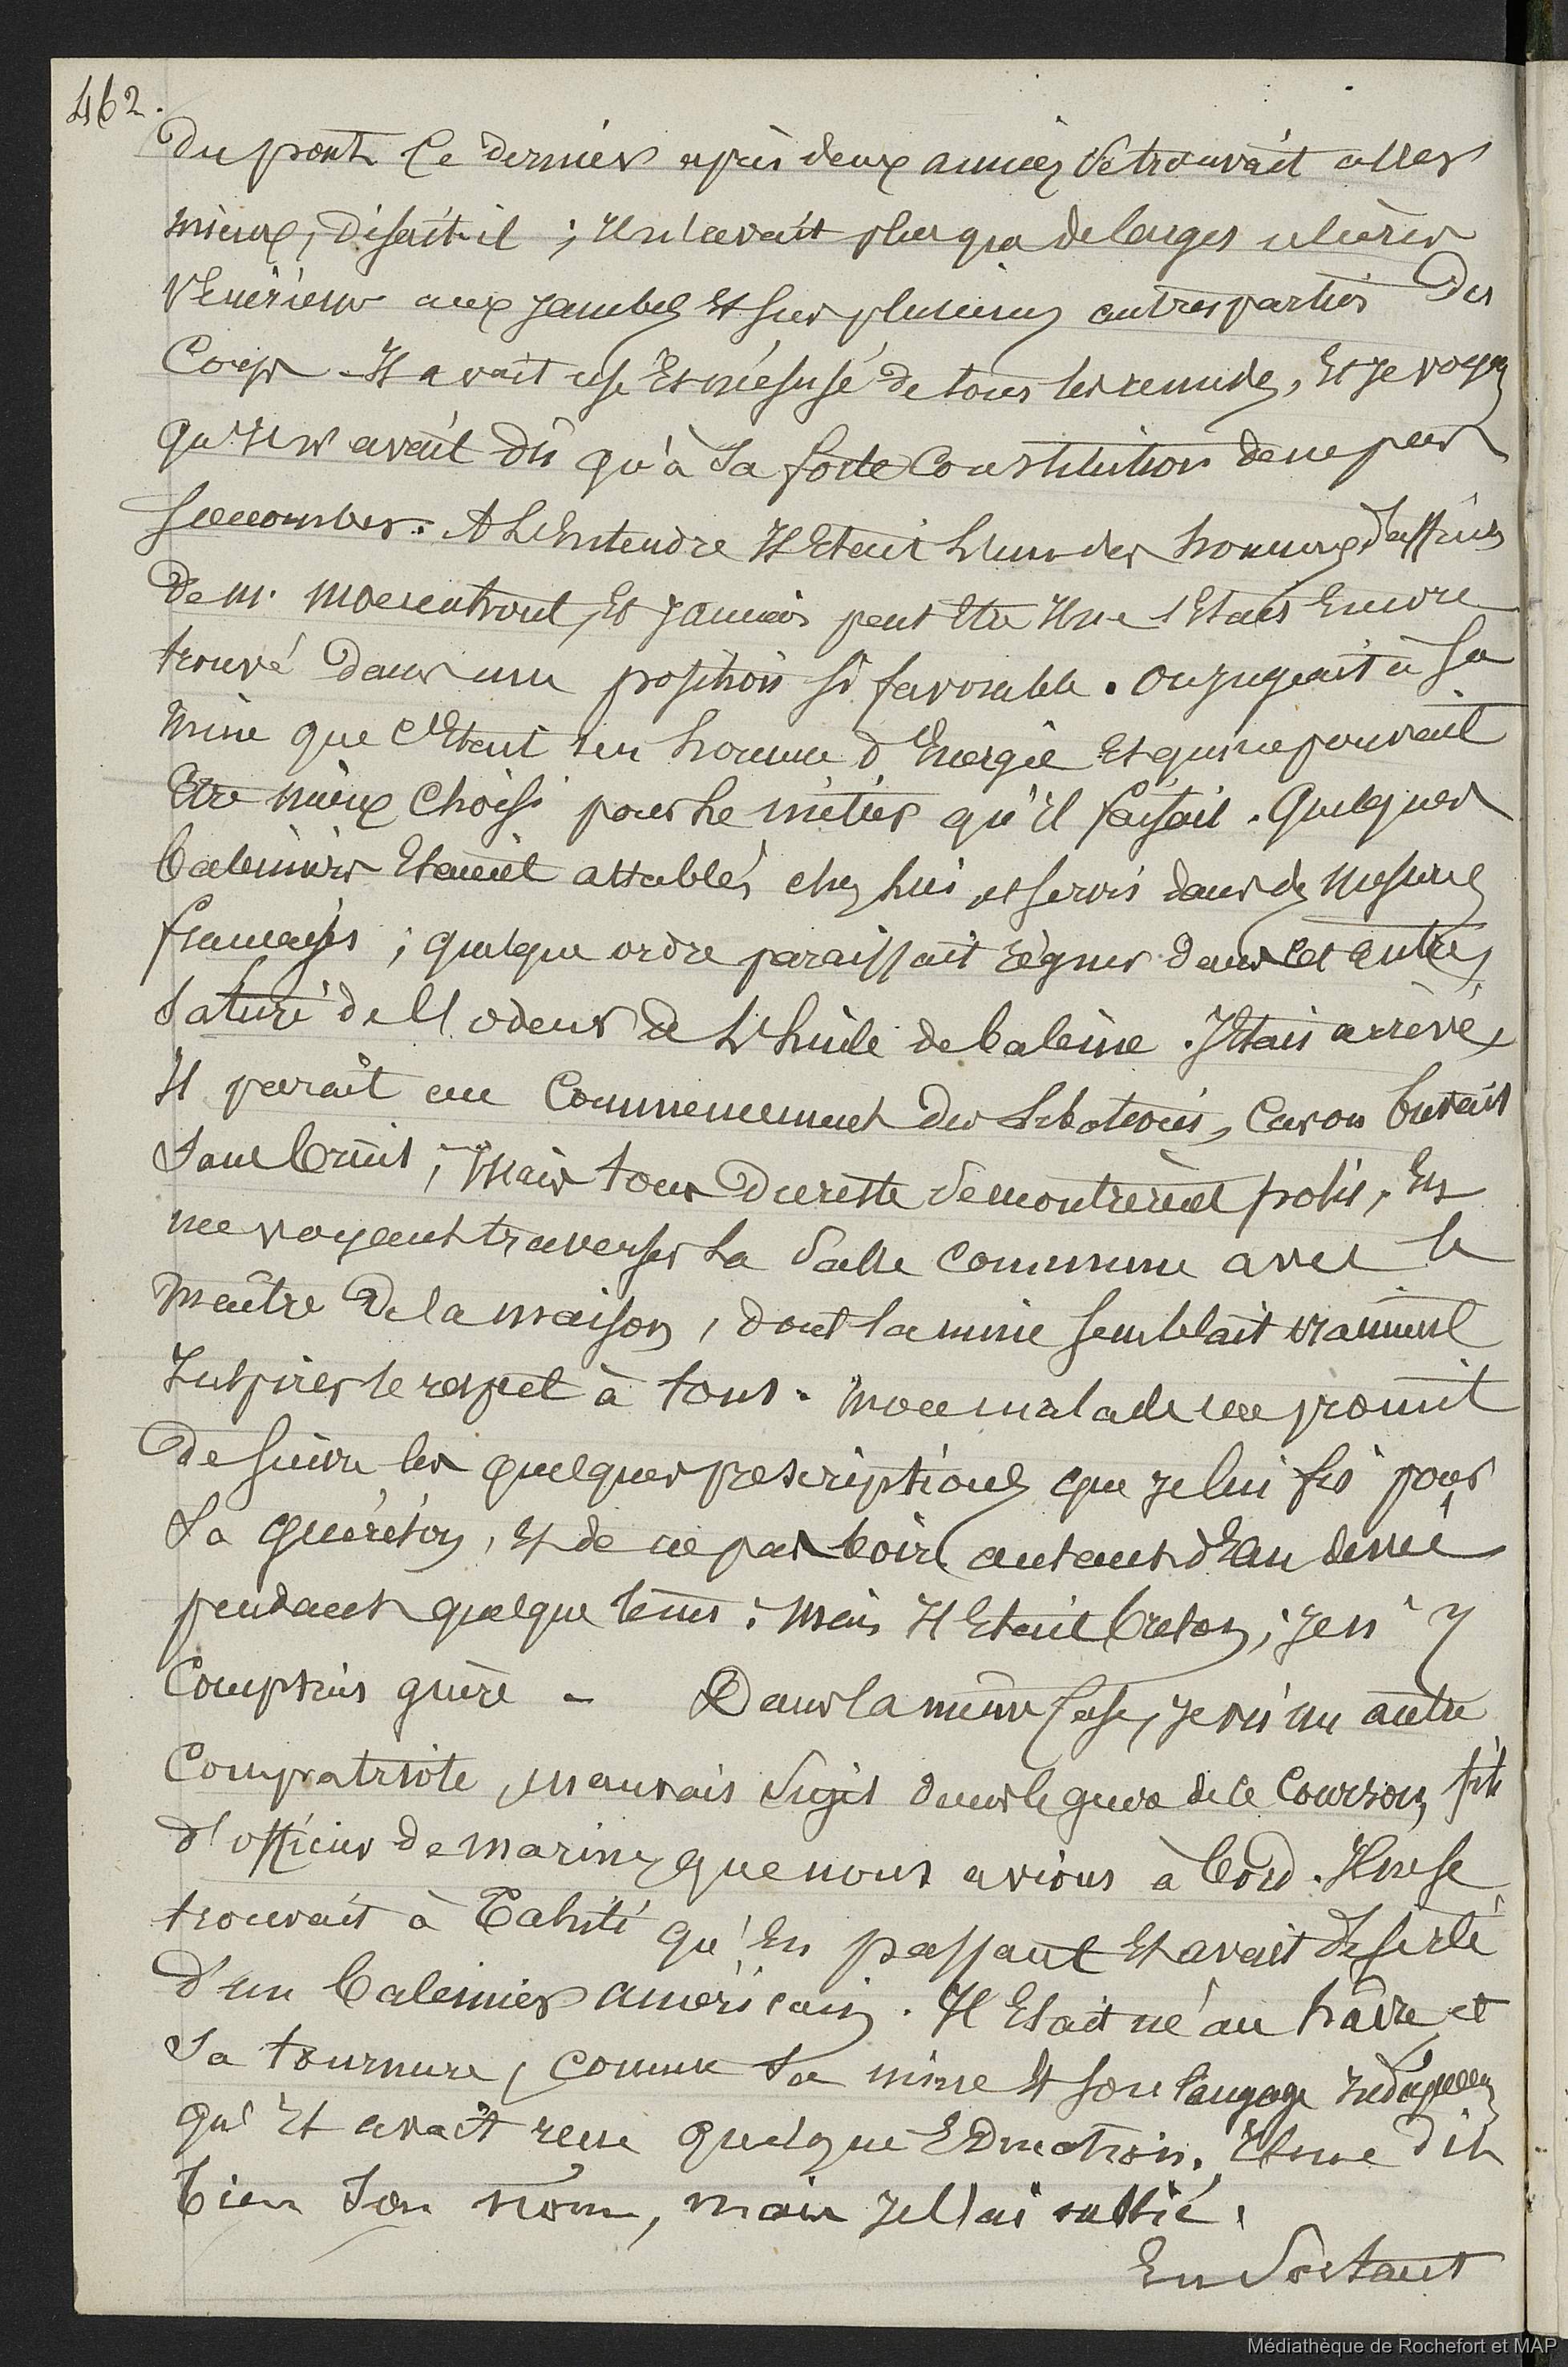 462.
Du pont. Ce dernier après deux années se trouvait aller
mieux, disait-il ; il n'avait plus que de larges ulcères
vénériens aux jambes et sur plusieurs autres parties Du
Corps. Il avait usé Et mésusé de tous les remèdes, Et je voyais
qu'Il n'avait dû qu'à sa forte Constitution de ne pas
succomber. A L'Entendre Il Etait L'un des hommes d'affaires
De Mr. Moerenhout, Et jamais peut Etre Il ne s'Etait Encore
trouvé dans une position si favorable. On jugeait à sa
mine que C'Etait un homme d'Energie Et qui ne pouvait
Etre mieux Choisi pour Le métier qu'il faisait. Quelques
baleiniers Etaient attablés chez lui, et servis dans des mesures
françaises ; quelque ordre paraissait régner dans cet antre,
saturé de L'odeur de L'huile de baleine. J'Etais arrivé,
Il paraît au Commencement des Libations, Car on buvait
sans bruit ; Mais tous Du reste se montrèrent polis, En
me voyant traverser La salle commune avec le
Maître De la maison, dont la mine semblait vraiment
Inspirer le respect à tous. Mon malade me promit
De suivre les quelques prescriptions que je lui fis pour
sa guérison, Et de ne pas boire autant d'Eau de vie
pendant quelque tems ; Mais Il Etait breton, je n'y
Comptais guère - Dans la même Case, je vis un autre
Compatriote, mauvais sujet dans le genre de ce Courson, fils
d'officier de marine, que nous avions à bord. Il ne se
trouvait à Tahiti qu'En passant Et avait déserté
d'un baleinier américain. Il Etait né au hâvre, et
sa tournure, comme sa mine Et son langage
qu'Il avait reçu quelque Education. Il me dit
bien son nom, mais je l'ai oublié.
En Sortant
Médiathèque de Rochefort et MAP